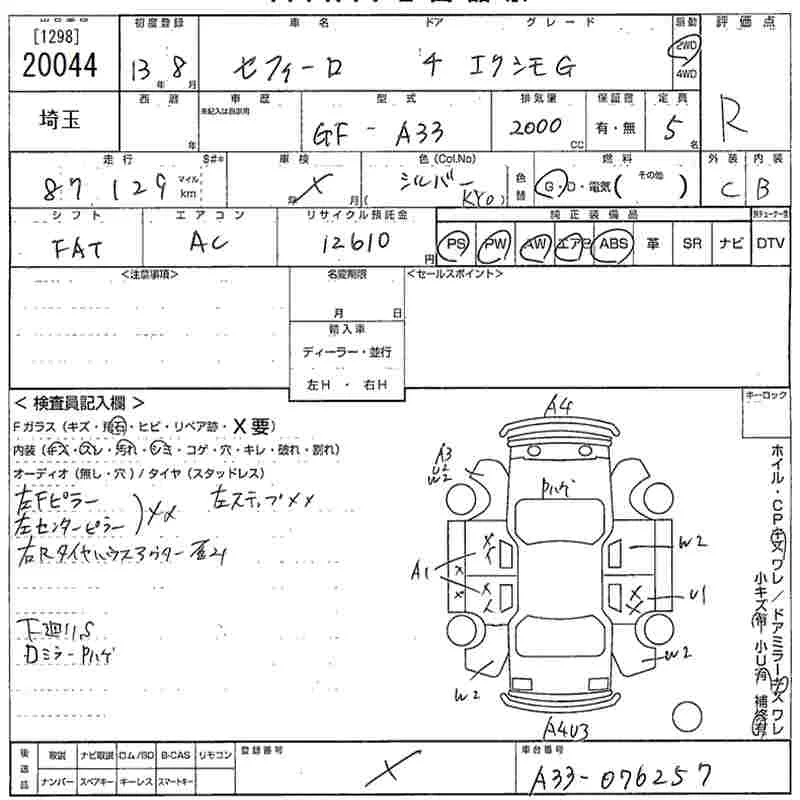 [1298] 初度登録 車名 ドア グレード 駆動 評価点
20044 13年 8月 セフィーロ 4 エクシモG 2WD 4WD R
埼玉 西暦 年 車歴 未記入は自家用 型式 GF-A33 排気量 2000 CC 保証書 有・無 定員 5名
走行 S#* 87129 マイル km 車検 年 X 月 色(Col.No) シルバー (KY0) 色替 燃料 G・D・電気( その他 ) 外装 C 内装 B
シフト FAT エアコン AC リサイクル預託金 12610円 純正装備品 PS PW AW エアB ABS 革 SR ナビ DTV
<注意事項> 名変期限 <セールスポイント>
月 日
輸入車
ディーラー・並行
左H ・ 右H
< 検査員記入欄 > キーロック
Fガラス(キズ・飛石・ヒビ・リペア跡・X要)
内装(キズ・スレ・汚れ・シミ・コゲ・穴・キレ・破れ・割れ)
オーディオ(無し・穴) / タイヤ(スタッドレス)
左Fピラー
左センターピラー ) XX 左ステップXX
右Rタイヤハウスアウター
下廻りS
DミラーPハゲ
A4
A3
U2
W2
Pハゲ
X
A1
W2
U1
W2
W2
A4U3
ホイル・CPキズワレ / ドアミラーキズワレ
小キズ有 小U有 補修有
後送品 取説 ナビ取説 ロム/SD B-CAS リモコン 登録番号 X 車台番号 A33-076257
ナンバー スペアキー キーレス スマートキー